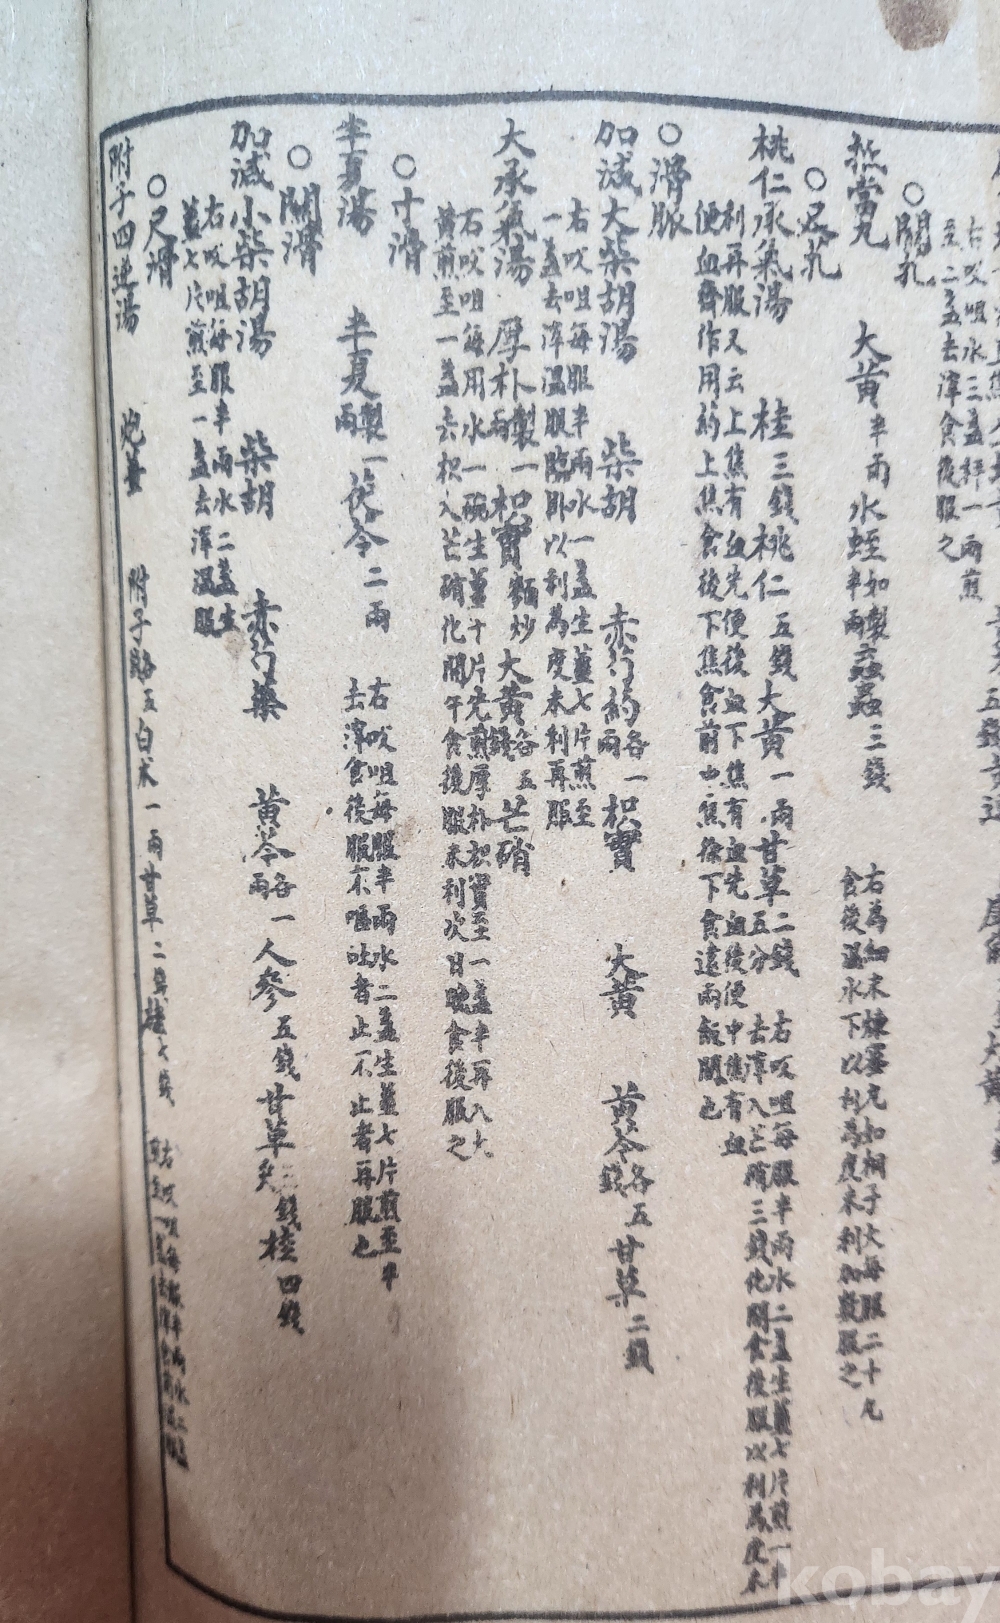 右㕮咀水三盞拌一兩煎
至二盞去滓食後服之
○關芤
抵當丸 大黃半兩水蛭如製半兩䖟蟲三錢 右為細末煉蜜丸如桐子大每服二十丸
食後溫水下以利為度未利加數服之
○尺芤
桃仁承氣湯 桂三錢桃仁五錢大黃一兩甘草二錢五分 右㕮咀每服半兩水二盞生薑七片煎一
去滓入芒硝三錢化開食後服以利為度未
利再服又云上焦有血先便後血下焦有血先血後便中焦有血
便血齊作用約上焦食後下焦食前中焦徐下食遠兩飯間也
○滑脈
加減大柴胡湯 柴胡 赤芍藥各一兩 枳實 大黃 黃芩各五錢甘草二錢
右㕮咀每服半兩水一盞生薑七片煎至
一盞去滓溫服臨卧以利為度未利再服
大承氣湯 厚朴製一兩枳實麵炒大黃各五錢芒硝
右㕮咀每用水一碗生薑十片先煎厚朴枳實至一盞半再入大
黃煎至一盞去柤入芒硝化開午食後服未利次日晚食後服之
○寸滑
半夏湯 半夏製一兩茯苓二兩 右㕮咀每服半兩水二盞生薑七片煎至半
去滓食後服不嘔吐者止不止者再服也
○關滑
加減小柴胡湯 柴胡 赤芍藥 黃芩各一兩人參五錢甘草炙三錢桂四錢
右㕮咀每服半兩水二盞生
薑七片煎至一盞去滓溫服
○尺滑
附子四逆湯 炮薑 附子各五錢白朮一兩甘草二錢桂七錢 右㕮咀每服半兩水二盞